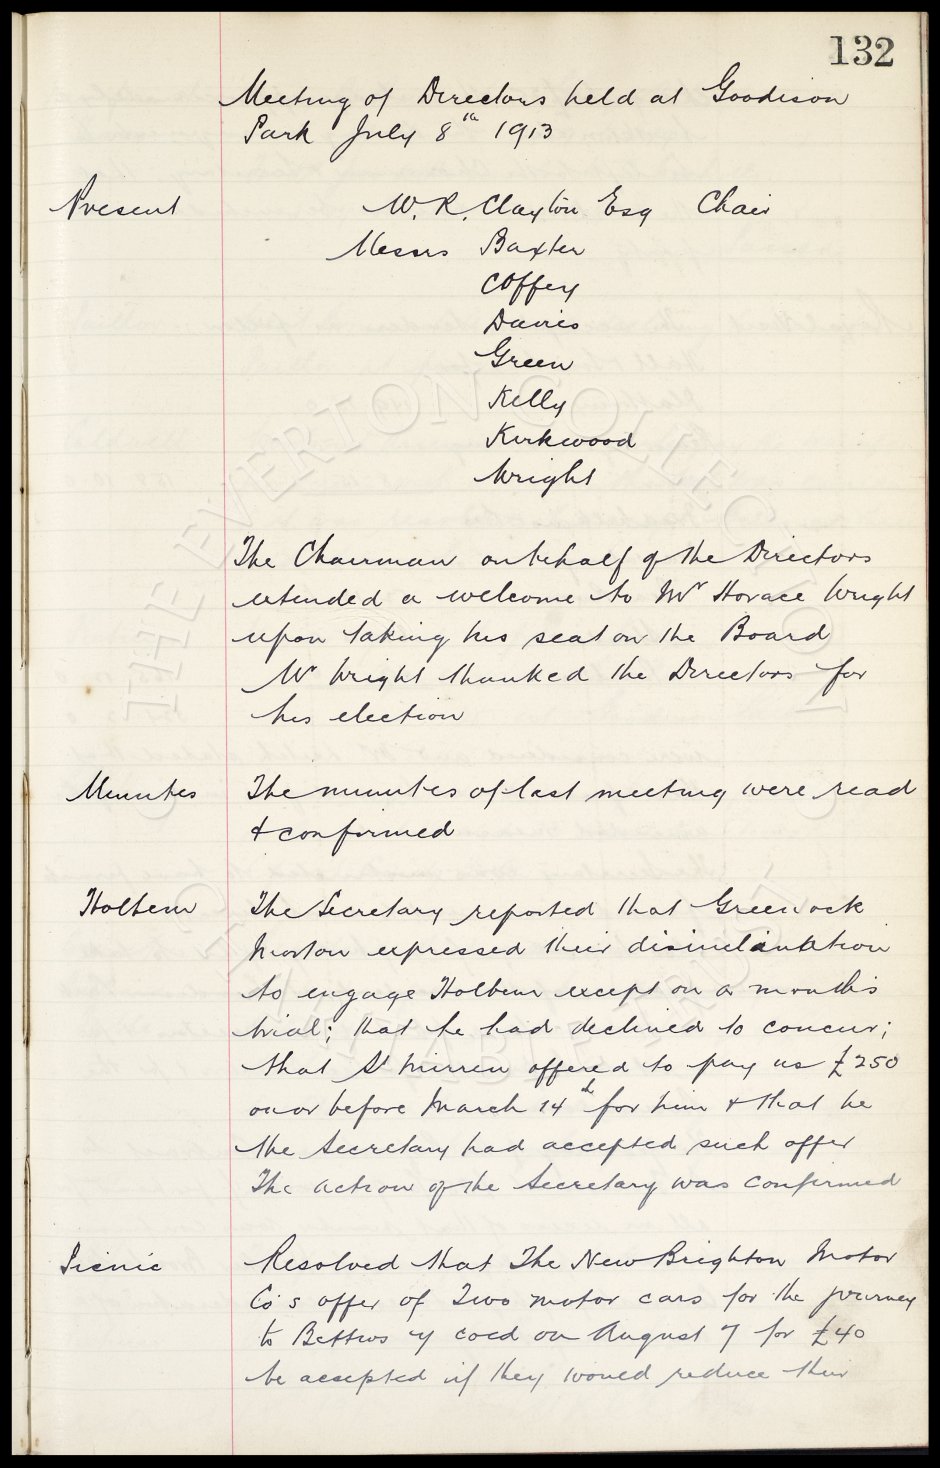 132
Meeting of Directors held at Goodison
Park July 8th 1913
Present
W. R. Clayton Esq Chair
Messrs Baxter
Coffey
Davies
Green
Kelly
Kirkwood
Wright
The Chairman on behalf of the Directors
extended a welcome to Mr Horace Wright
upon taking his seat on the Board
Mr Wright thanked the Directors for
his election
Minutes The minutes of last meeting were read
& confirmed
Holbem The Secretary reported that Greenock
Morton expressed their disinclination
to engage Holbem except on a month's
trial; that he had declined to concur;
that St Mirren offered to pay us £250
on or before March 14th for him & that he
the Secretary had accepted such offer
The action of the Secretary was confirmed
Picnic Resolved that The New Brighton Motor
Co's offer of Two motor cars for the journey
to Bettws y coed on August 7 for £40
be accepted if they would reduce their
THE EVERTON COLLECTION